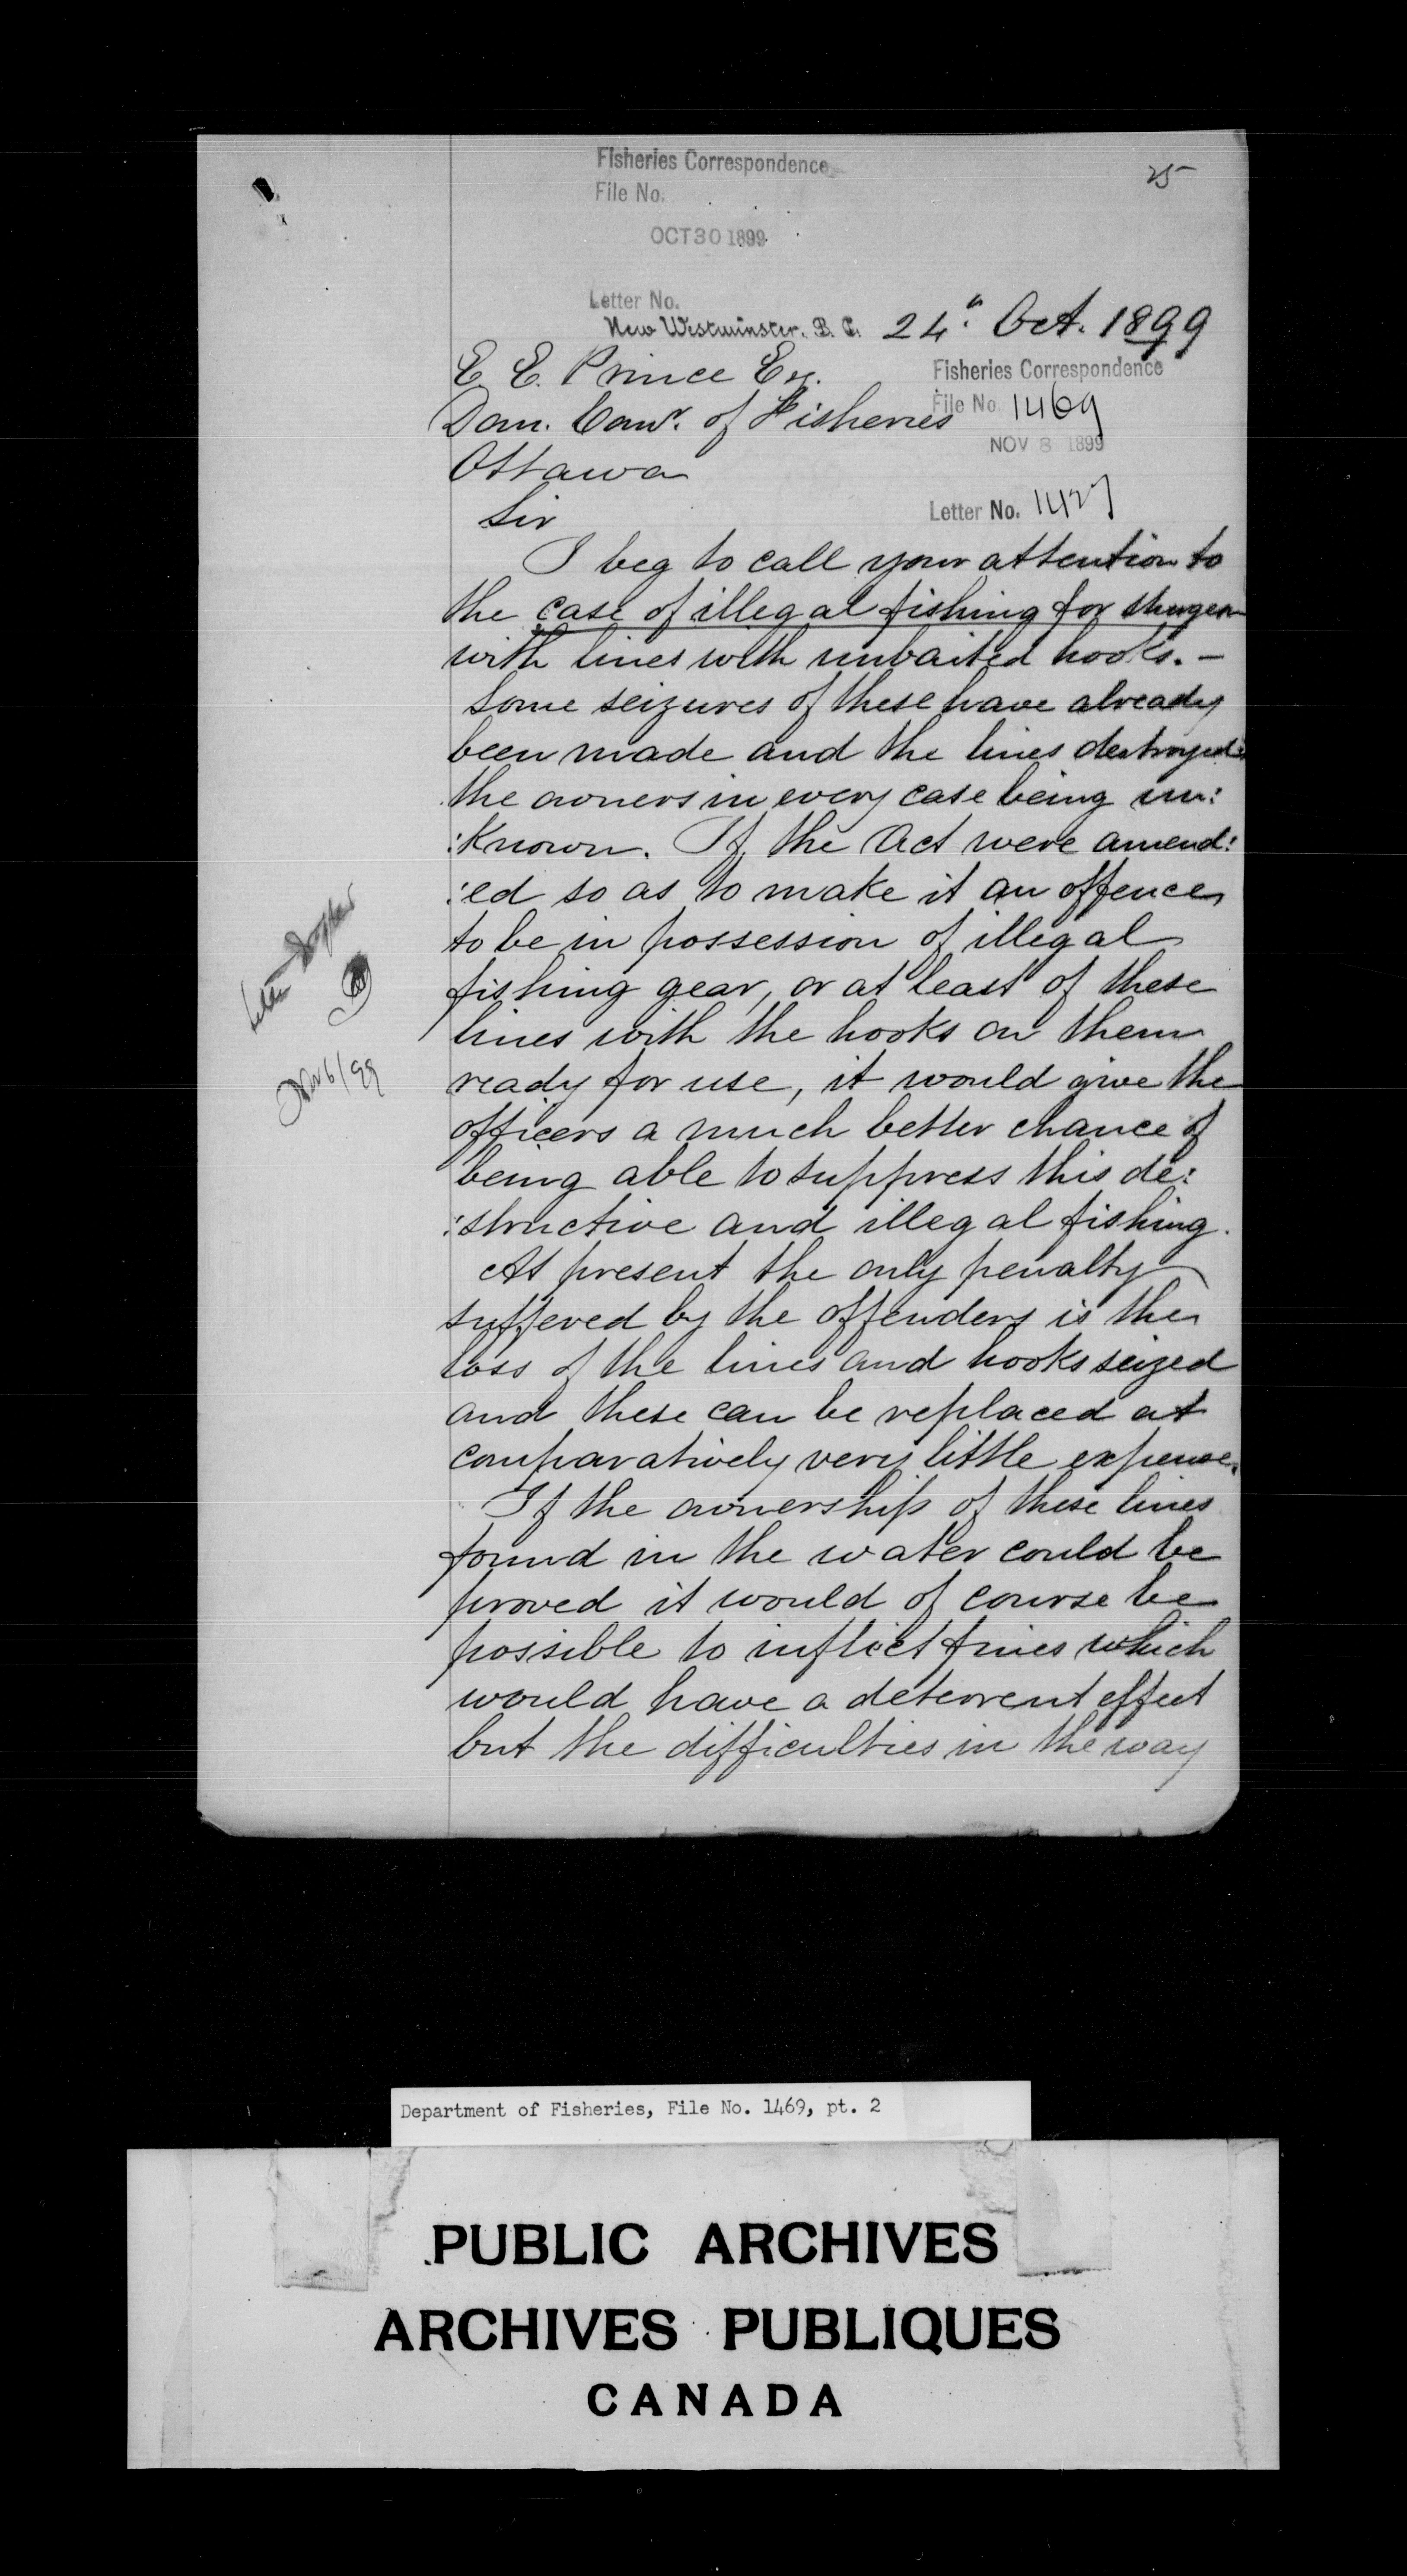 Fisheries Correspondence
File No.
25
OCT 30 1899
Letter No.
New Westminster, B. C. 24th Oct. 1899
E. E. Prince Esq.
Fisheries Correspondence
File No. 1469
Dom. Comr. of Fisheries
NOV 8 1899
Ottawa
Letter No. 1427
Sir
I beg to call your attention to
the case of illegal fishing for sturgeon
with lines with unbaited hooks. —
Some seizures of these have already
been made and the lines destroyed
the owners in every case being un:
:known. If the Act were amend:
:ed so as to make it an offence
to be in possession of illegal
fishing gear, or at least of these
lines with the hooks on them
ready for use, it would give the
officers a much better chance of
being able to suppress this de:
:structive and illegal fishing.
At present the only penalty
suffered by the offenders is the
loss of the lines and hooks seized
and these can be replaced at
comparatively very little expense.
If the ownership of these lines
found in the water could be
proved it would of course be
possible to inflict fines which
would have a deterrent effect
but the difficulties in the way
Nov 6/99
Department of Fisheries, File No. 1469, pt. 2
PUBLIC ARCHIVES
ARCHIVES PUBLIQUES
CANADA